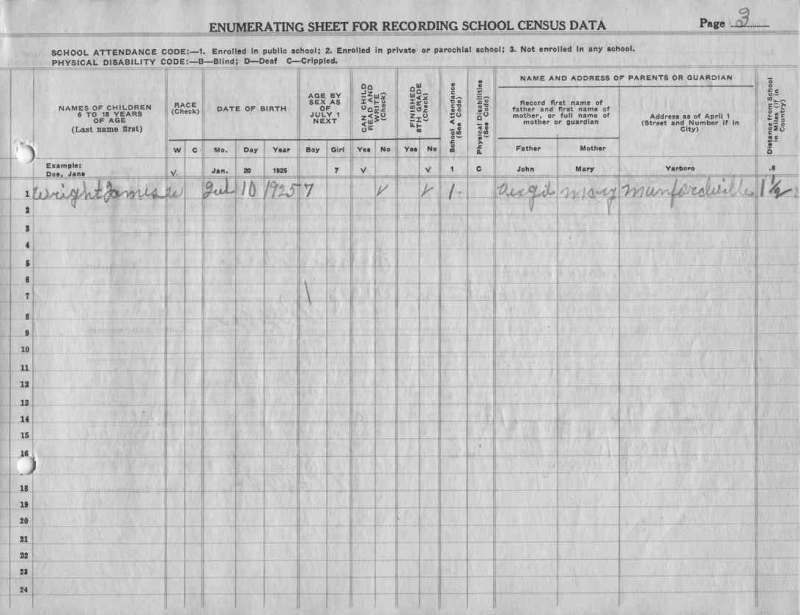 ENUMERATING SHEET FOR RECORDING SCHOOL CENSUS DATA
Page 3
SCHOOL ATTENDANCE CODE:—1. Enrolled in public school; 2. Enrolled in private or parochial school; 3. Not enrolled in any school.
PHYSICAL DISABILITY CODE:—B—Blind; D—Deaf C—Crippled.
NAMES OF CHILDREN
6 TO 18 YEARS
OF AGE
(Last name first)
RACE
(Check)
W C
DATE OF BIRTH
Mo. Day Year
AGE BY
SEX AS
OF
JULY 1
NEXT
Boy Girl
CAN CHILD
READ AND
WRITE
(Check)
Yes No
FINISHED
8TH GRADE
(Check)
Yes No
School Attendance
(See Code)
Physical Disabilities
(See Code)
NAME AND ADDRESS OF PARENTS OR GUARDIAN
Record first name of
father and first name of
mother, or full name of
mother or guardian
Father Mother
Address as of April 1
(Street and Number if in
City)
Distance from School
in Miles (if in
Country)
Example:
Doe, Jane V Jan. 20 1925 7 V V 1 C John Mary Yarboro .5
1 Wright James w Jul 10 1925 7 V V 1. Mary Munfordville 1 1/2
2
3
4
5
6
7
8
9
10
11
12
13
14
15
16
18
19
20
21
22
23
24